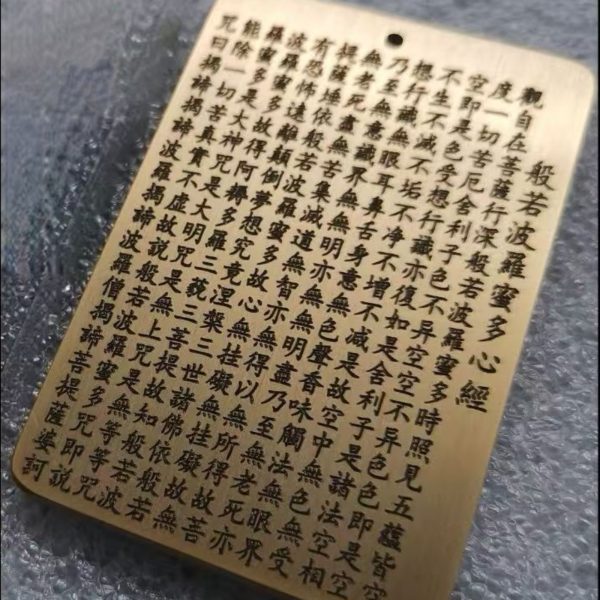 般若波羅蜜多心經
觀自在菩薩行深般若波羅蜜多時照見五蘊皆空
度一切苦厄舍利子色不異空空不異色色即是空
空即是色受想行識亦復如是舍利子是諸法空相
不生不滅不垢不淨不增不減是故空中無色無受
想行識無眼耳鼻舌身意無色聲香味觸法無眼界
乃至無意識界無無明亦無無明盡乃至無老死亦
無老死盡無苦集滅道無智亦無得以無所得故菩
提薩埵依般若波羅蜜多故心無挂礙無挂礙故無
有恐怖遠離顛倒夢想究竟涅槃三世諸佛依般若
波羅蜜多故得阿耨多羅三藐三菩提故知般若波
羅蜜多是大神咒是大明咒是無上咒是無等等咒
能除一切苦真實不虛故說般若波羅蜜多咒即說
咒曰揭諦揭諦波羅揭諦波羅僧揭諦菩提薩婆訶